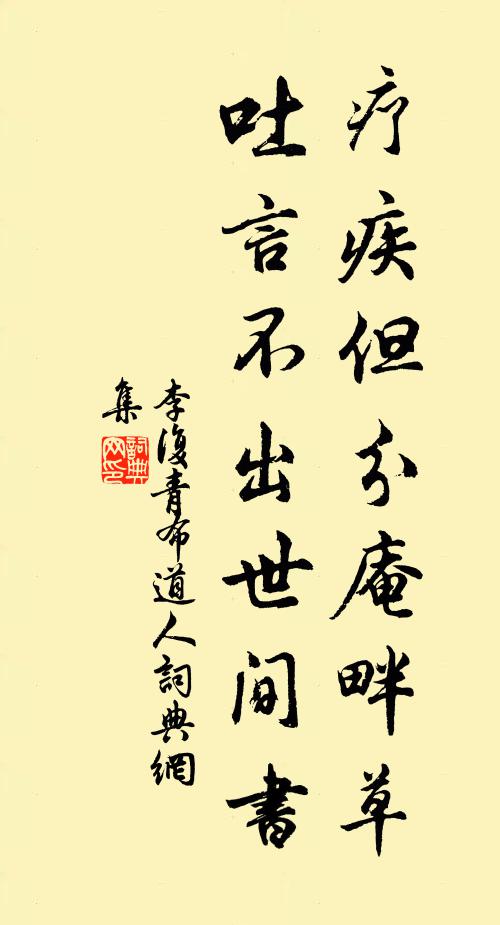 疗疾但分庵畔草
吐言不出世间書
李復青布道人詞典網
集
詞典網印